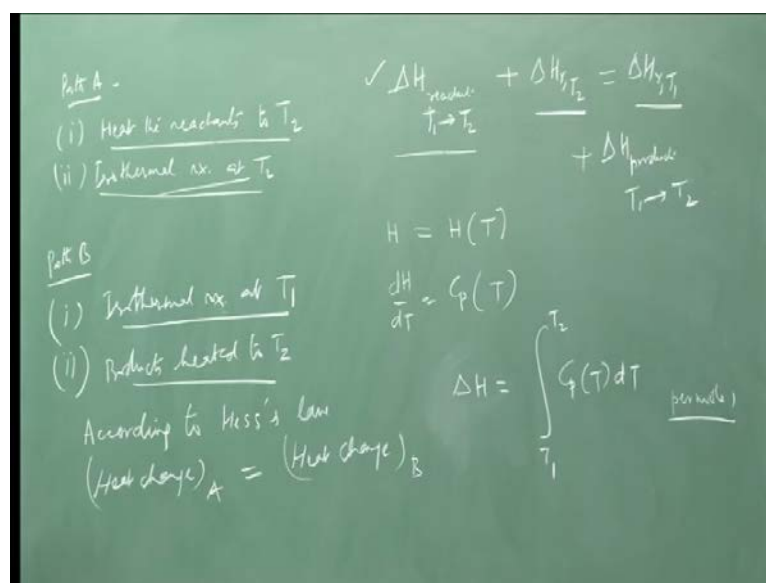 Path A -
(i) Heat the reactants to T₂
(ii) Isothermal rx. at T₂
Path B
(i) Isothermal rx. at T₁
(ii) Products heated to T₂
According to Hess's law
(Heat change)_A = (Heat change)_B
✓ ΔH_reactants T₁→T₂ + ΔH_r,T₂ = ΔH_r,T₁
+ ΔH_products T₁→T₂
H = H(T)
dH/dT = Cp(T)
ΔH = ∫_T₁^T₂ Cp(T) dT
per mole